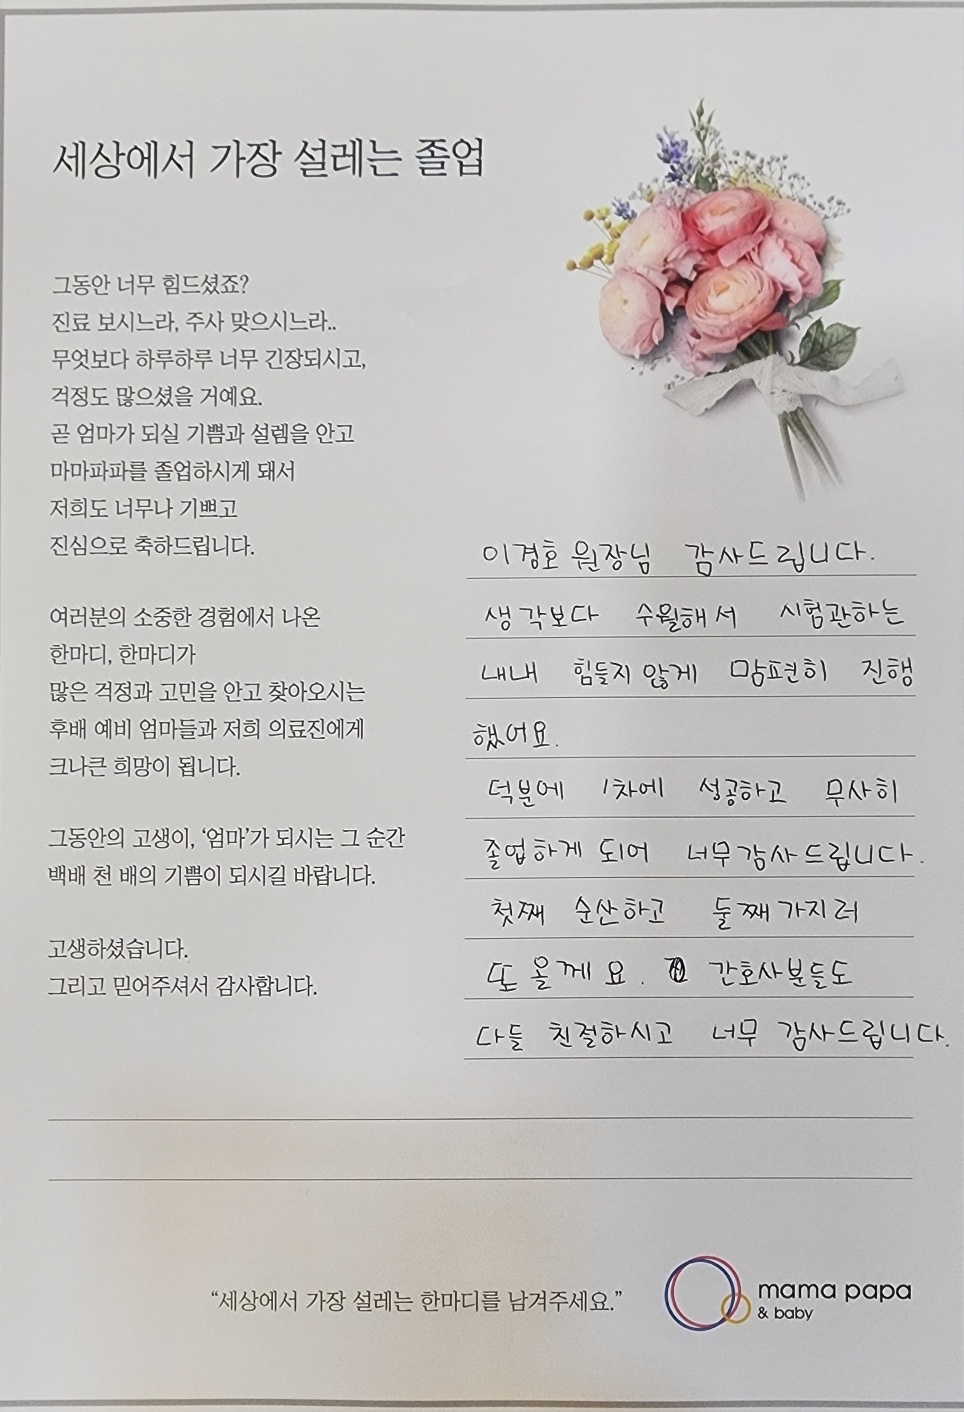 세상에서 가장 설레는 졸업
그동안 너무 힘드셨죠?
진료 보시느라, 주사 맞으시느라..
무엇보다 하루하루 너무 긴장되시고,
걱정도 많으셨을 거예요.
곧 엄마가 되실 기쁨과 설렘을 안고
마마파파를 졸업하시게 돼서
저희도 너무나 기쁘고
진심으로 축하드립니다.
여러분의 소중한 경험에서 나온
한마디, 한마디가
많은 걱정과 고민을 안고 찾아오시는
후배 예비 엄마들과 저희 의료진에게
크나큰 희망이 됩니다.
그동안의 고생이, ‘엄마’가 되시는 그 순간
백배 천 배의 기쁨이 되시길 바랍니다.
고생하셨습니다.
그리고 믿어주셔서 감사합니다.
이경호 원장님 감사드립니다.
생각보다 수월해서 시험관하는
내내 힘들지 않게 맘편히 진행
했어요.
덕분에 1차에 성공하고 무사히
졸업하게 되어 너무 감사드립니다.
첫째 순산하고 둘째 가지러
또 올께요. 간호사분들도
다들 친절하시고 너무 감사드립니다.
“세상에서 가장 설레는 한마디를 남겨주세요.”
mama papa
& baby